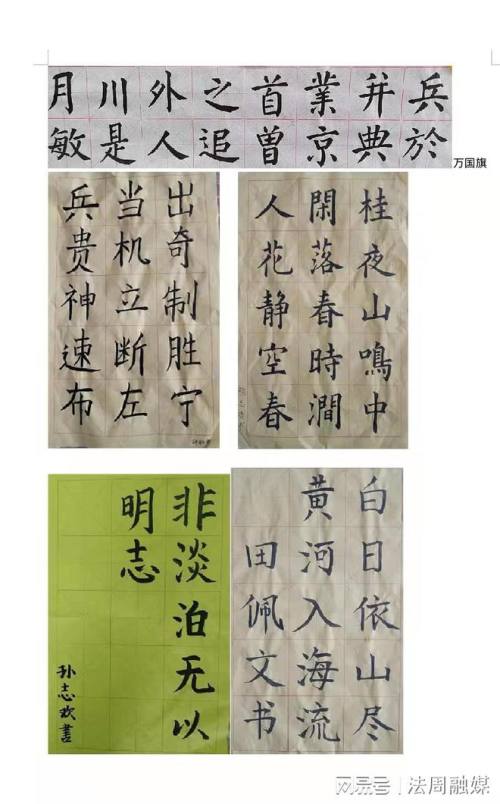 月川外之首業并兵
敏是人追曾京典於
万国旗
出奇制胜宁
当机立断左
兵贵神速布
桂夜山鳴中
閑落春時澗
人花静空春
非淡泊无以
明志
孙志欢書
白日依山尽
黄河入海流
田佩文书
搜狐号@法周融媒